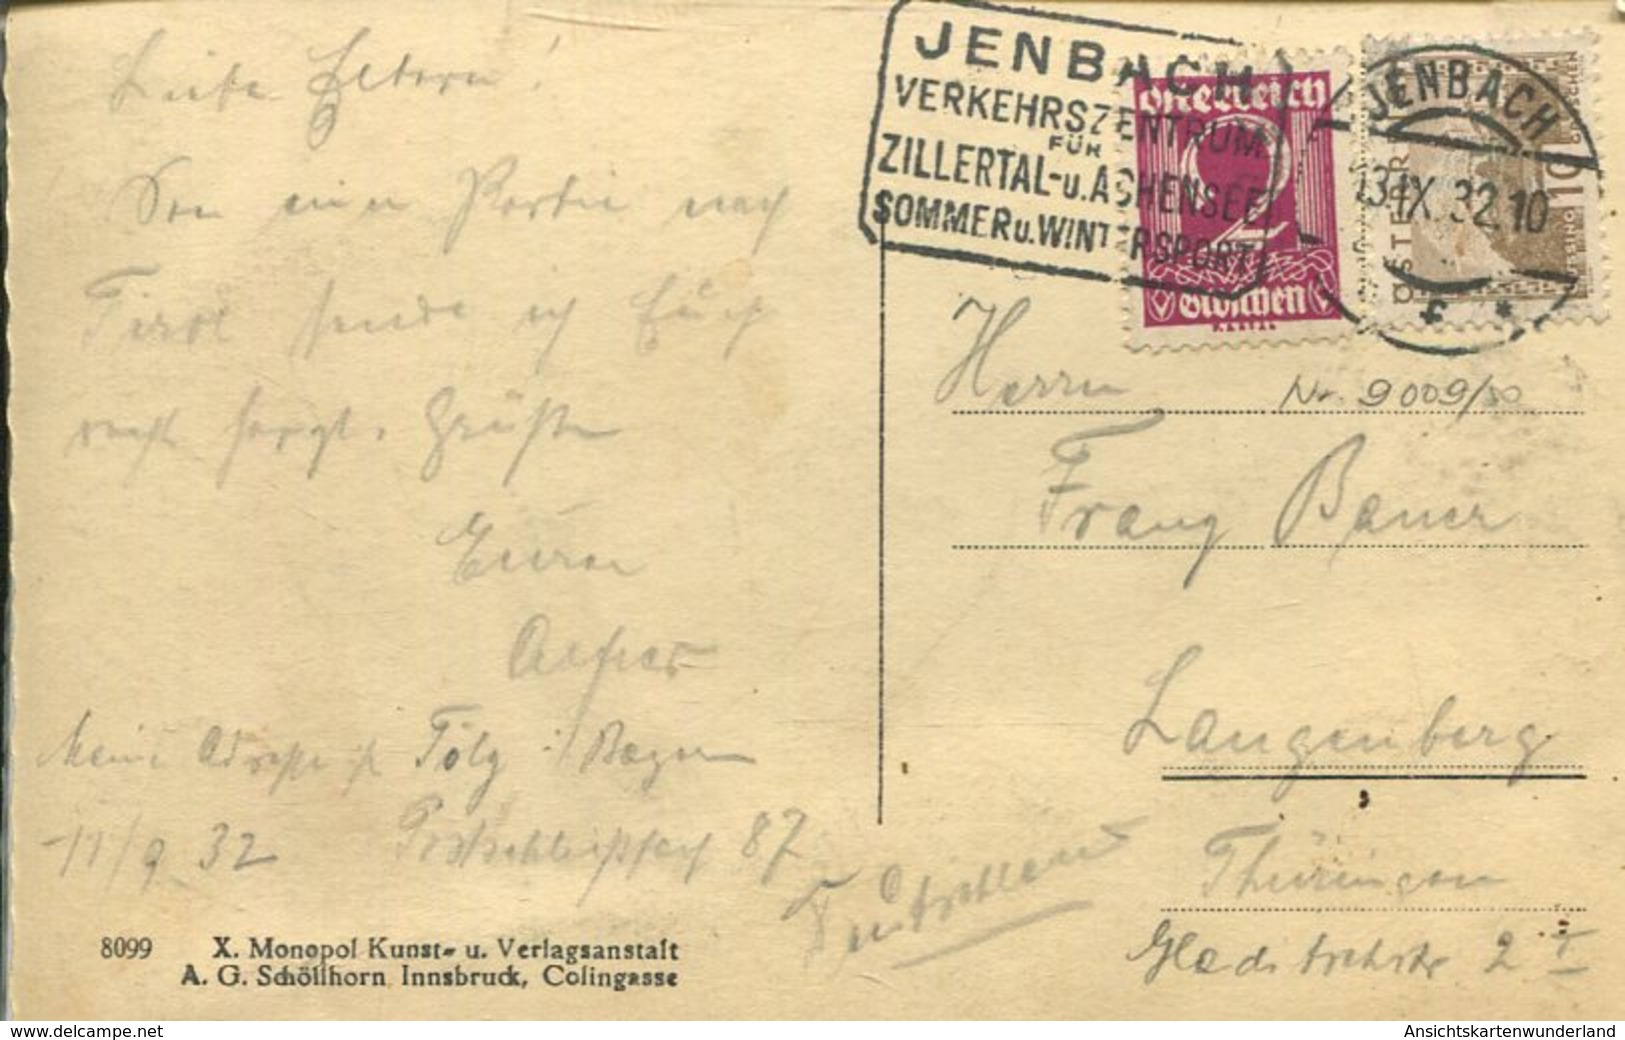 Liebe Eltern!
Von einer Partie nach
Tirol sende ich Euch
recht herzl. Grüße
Euer
Meine Adresse ist Tölz i/Bayern
11/9 32 Postschließfach 87
8099 X. Monopol Kunst- u. Verlagsanstalt
A. G. Schöllhorn Innsbruck, Colingasse
JENBACH
VERKEHRSZENTRUM
FÜR
ZILLERTAL-u. ACHENSEE
SOMMER u. WINTERSPORT
Österreich
2
Groschen
JENBACH
IX. 32. 10
ÖSTERREICH
10 GROSCHEN
Nr. 9009/50
Herrn
Franz Bauer
Langenberg
Thüringen
Deutschland
2 I
www.delcampe.net
Ansichtskartenwunderland